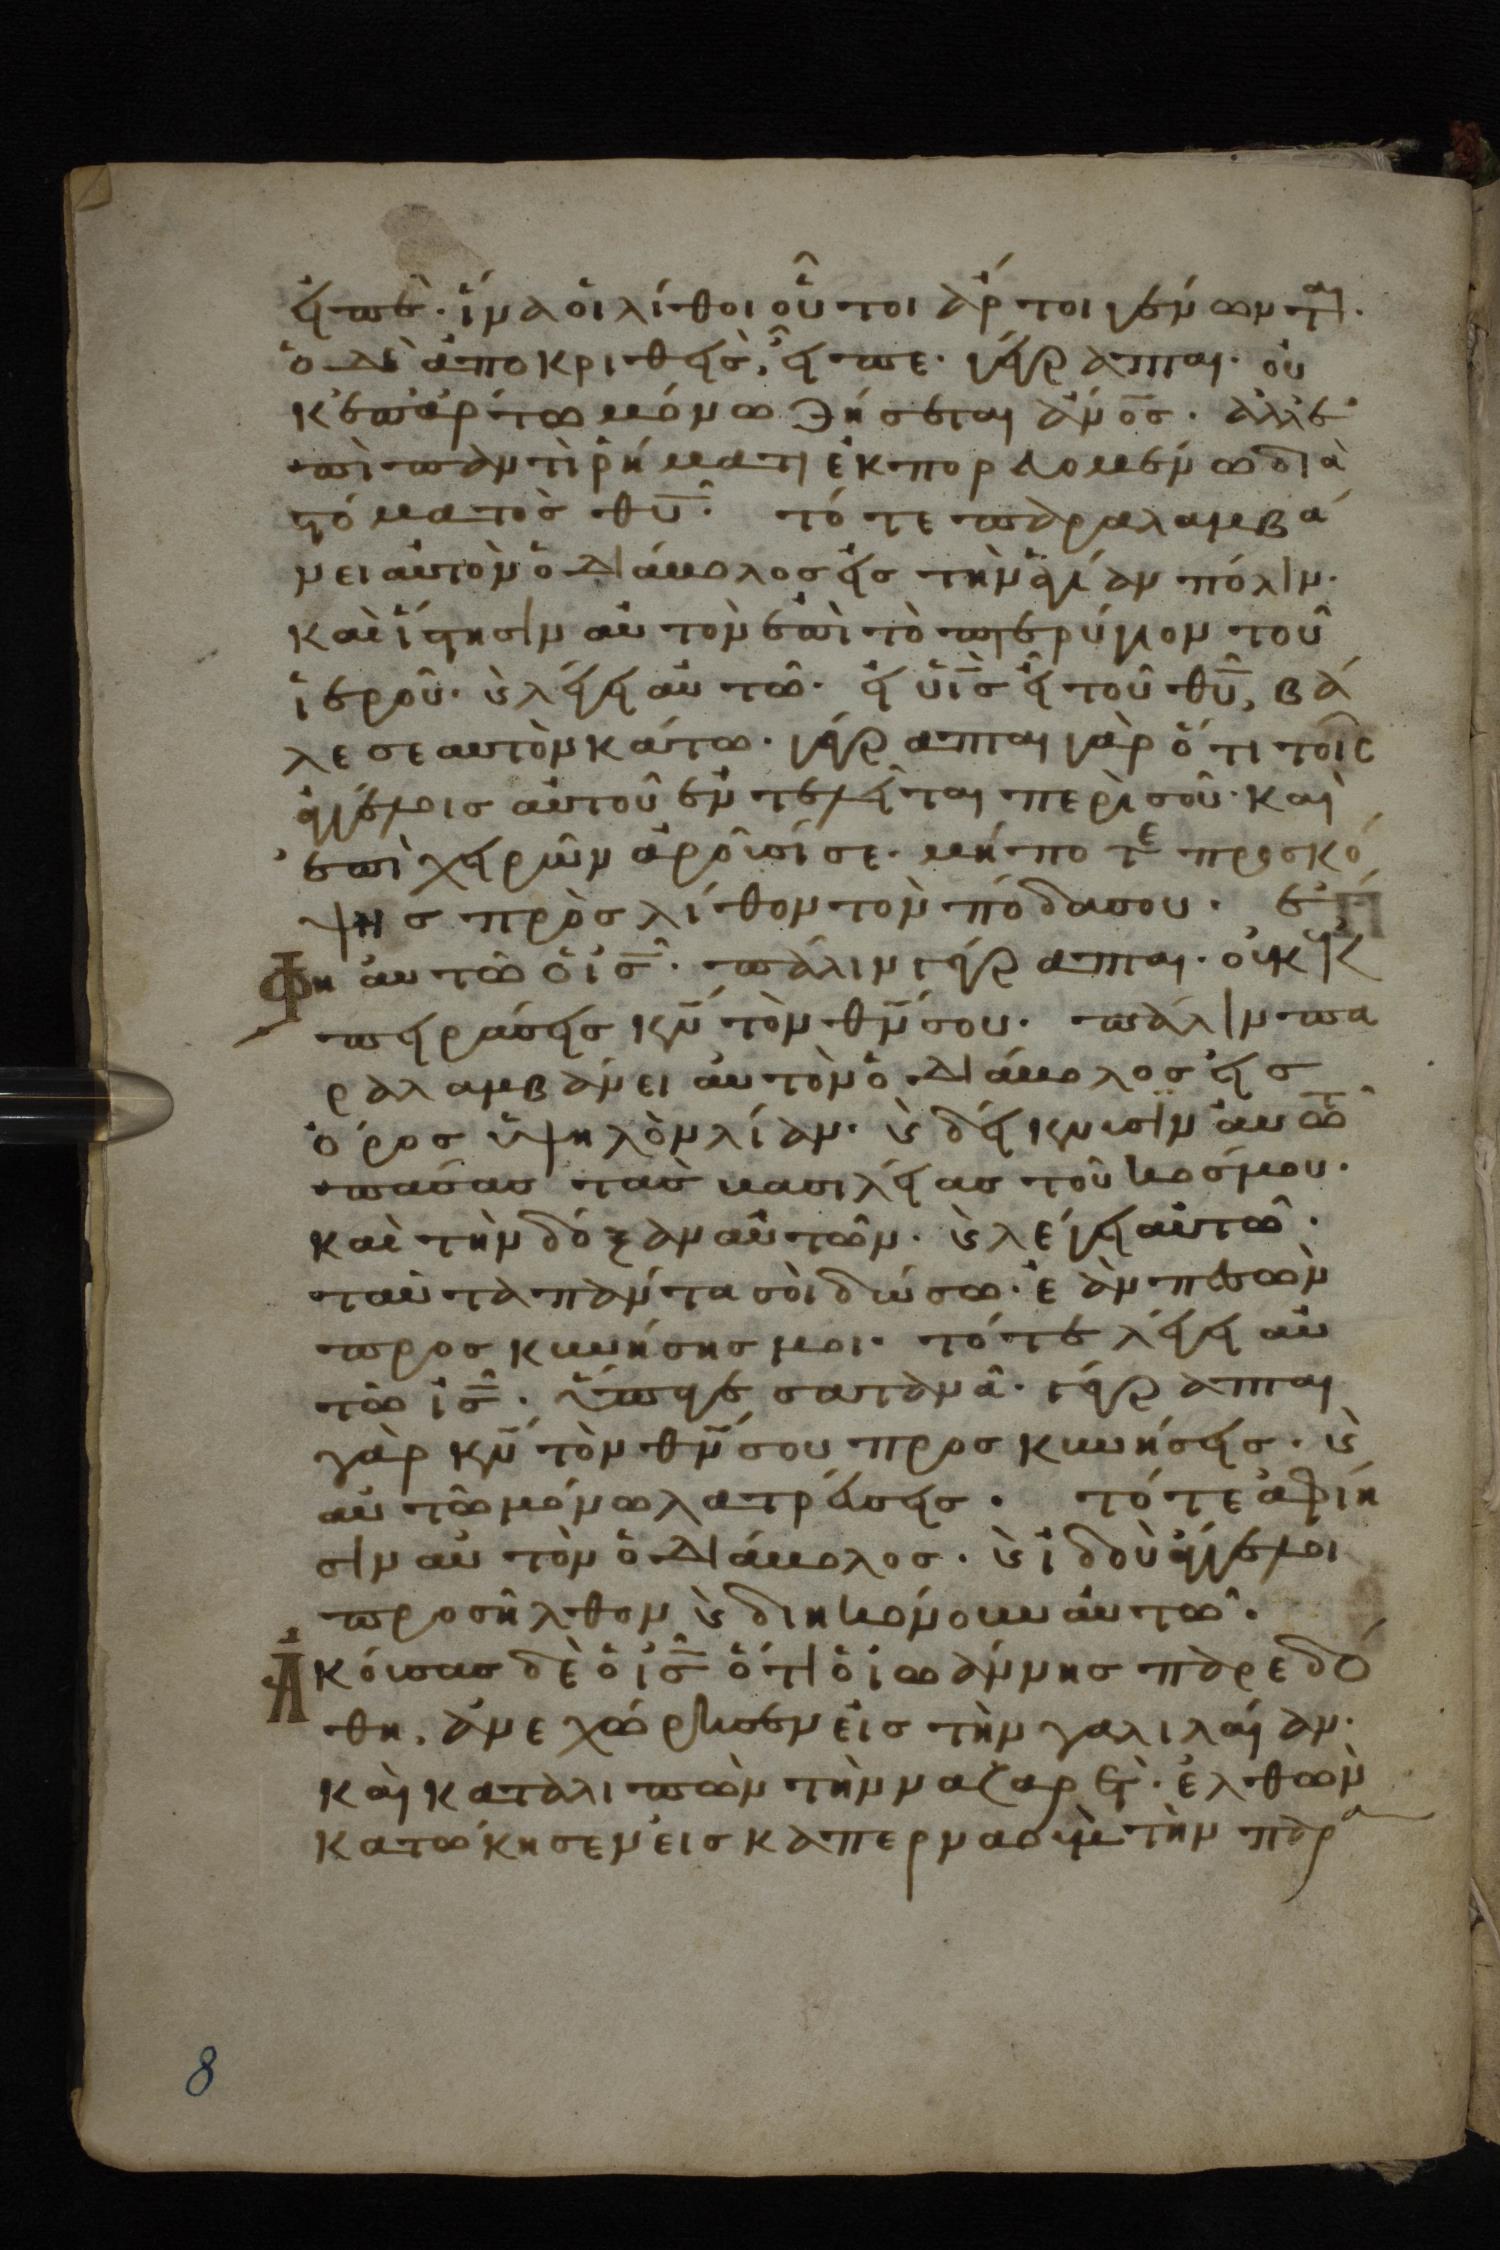 εἰπὲ· ἵνα οἱ λίθοι οὗτοι ἄρτοι γένωνται·
ὁ δὲ ἀποκριθεὶς, εἶπε· γέγραπται· οὐ
κ ἐπ' ἄρτω μόνω ζήσεται ἄνο̅ς· ἀλλ' ἐ
πὶ παντὶ ῥήματι ἐκπορευομένω διὰ
στόματος θυ̅· τότε παραλαμβά
νει αὐτὸν ὁ διάβολος εἰς τὴν ἁγίαν πόλιν·
καὶ ἵστησιν αὐτὸν ἐπὶ τὸ πτερύγιον τοῦ
ἱεροῦ· ϗ λέγει αὐτῶ· εἰ υἱ̅ς εἶ τοῦ θυ̅, βά
λε σεαυτὸν κάτω· γέγραπται γὰρ ὅτι τοῖς
ἀγγέλοις αὐτοῦ ἐντελεῖται περὶ σοῦ· καὶ
ἐπὶ χειρῶν ἀροῦσί σε· μήποτε προσκό
ψης πρὸς λίθον τὸν πόδα σου· ἔ
φη αὐτῶ ὁ ι̅ς· πάλιν γέγραπται· οὐκ ἐκ
πειράσεις κν̅ τὸν θν̅ σου· πάλιν πα
ραλαμβάνει αὐτὸν ὁ διάβολος εἰς
ὄρος ὑψηλὸν λίαν· ϗ δείκνυσϊν αὐτῶ
πάσας τὰς βασιλείας τοῦ κοσμου·
καὶ τὴν δόξαν αὐτῶν· ϗ λέγει αὐτῶ·
ταῦτα πάντα σοὶ δώσω· ἐὰν πεσὼν
προσκυνήσης μοι· τότε λέγει αὐ
τῶ ι̅ς· ὕπαγε σατανᾶ· γέγραπται
γὰρ κν̅ τὸν θν̅ σου προσκυνήσεις· ϗ
αὐτῶ μόνω λατρεύσεις· τότε ἀφίη
σιν αὐτὸν ὁ διάβολος· ϗ ἰδοὺ ἄγγελοι
προσῆλθον ϗ διηκόνουν αὐτῶ·
Ἀκούσας δὲ ὁ ι̅ς ὅτι ὁ ἰωάννης παρεδό
θη, ἀνεχώρησεν εἰς τὴν γαλιλαίαν·
καὶ καταλιπὼν τὴν ναζαρέτ· ἐλθὼν
κατώκησεν εἰς καπερναοὺμ τὴν παρα
8